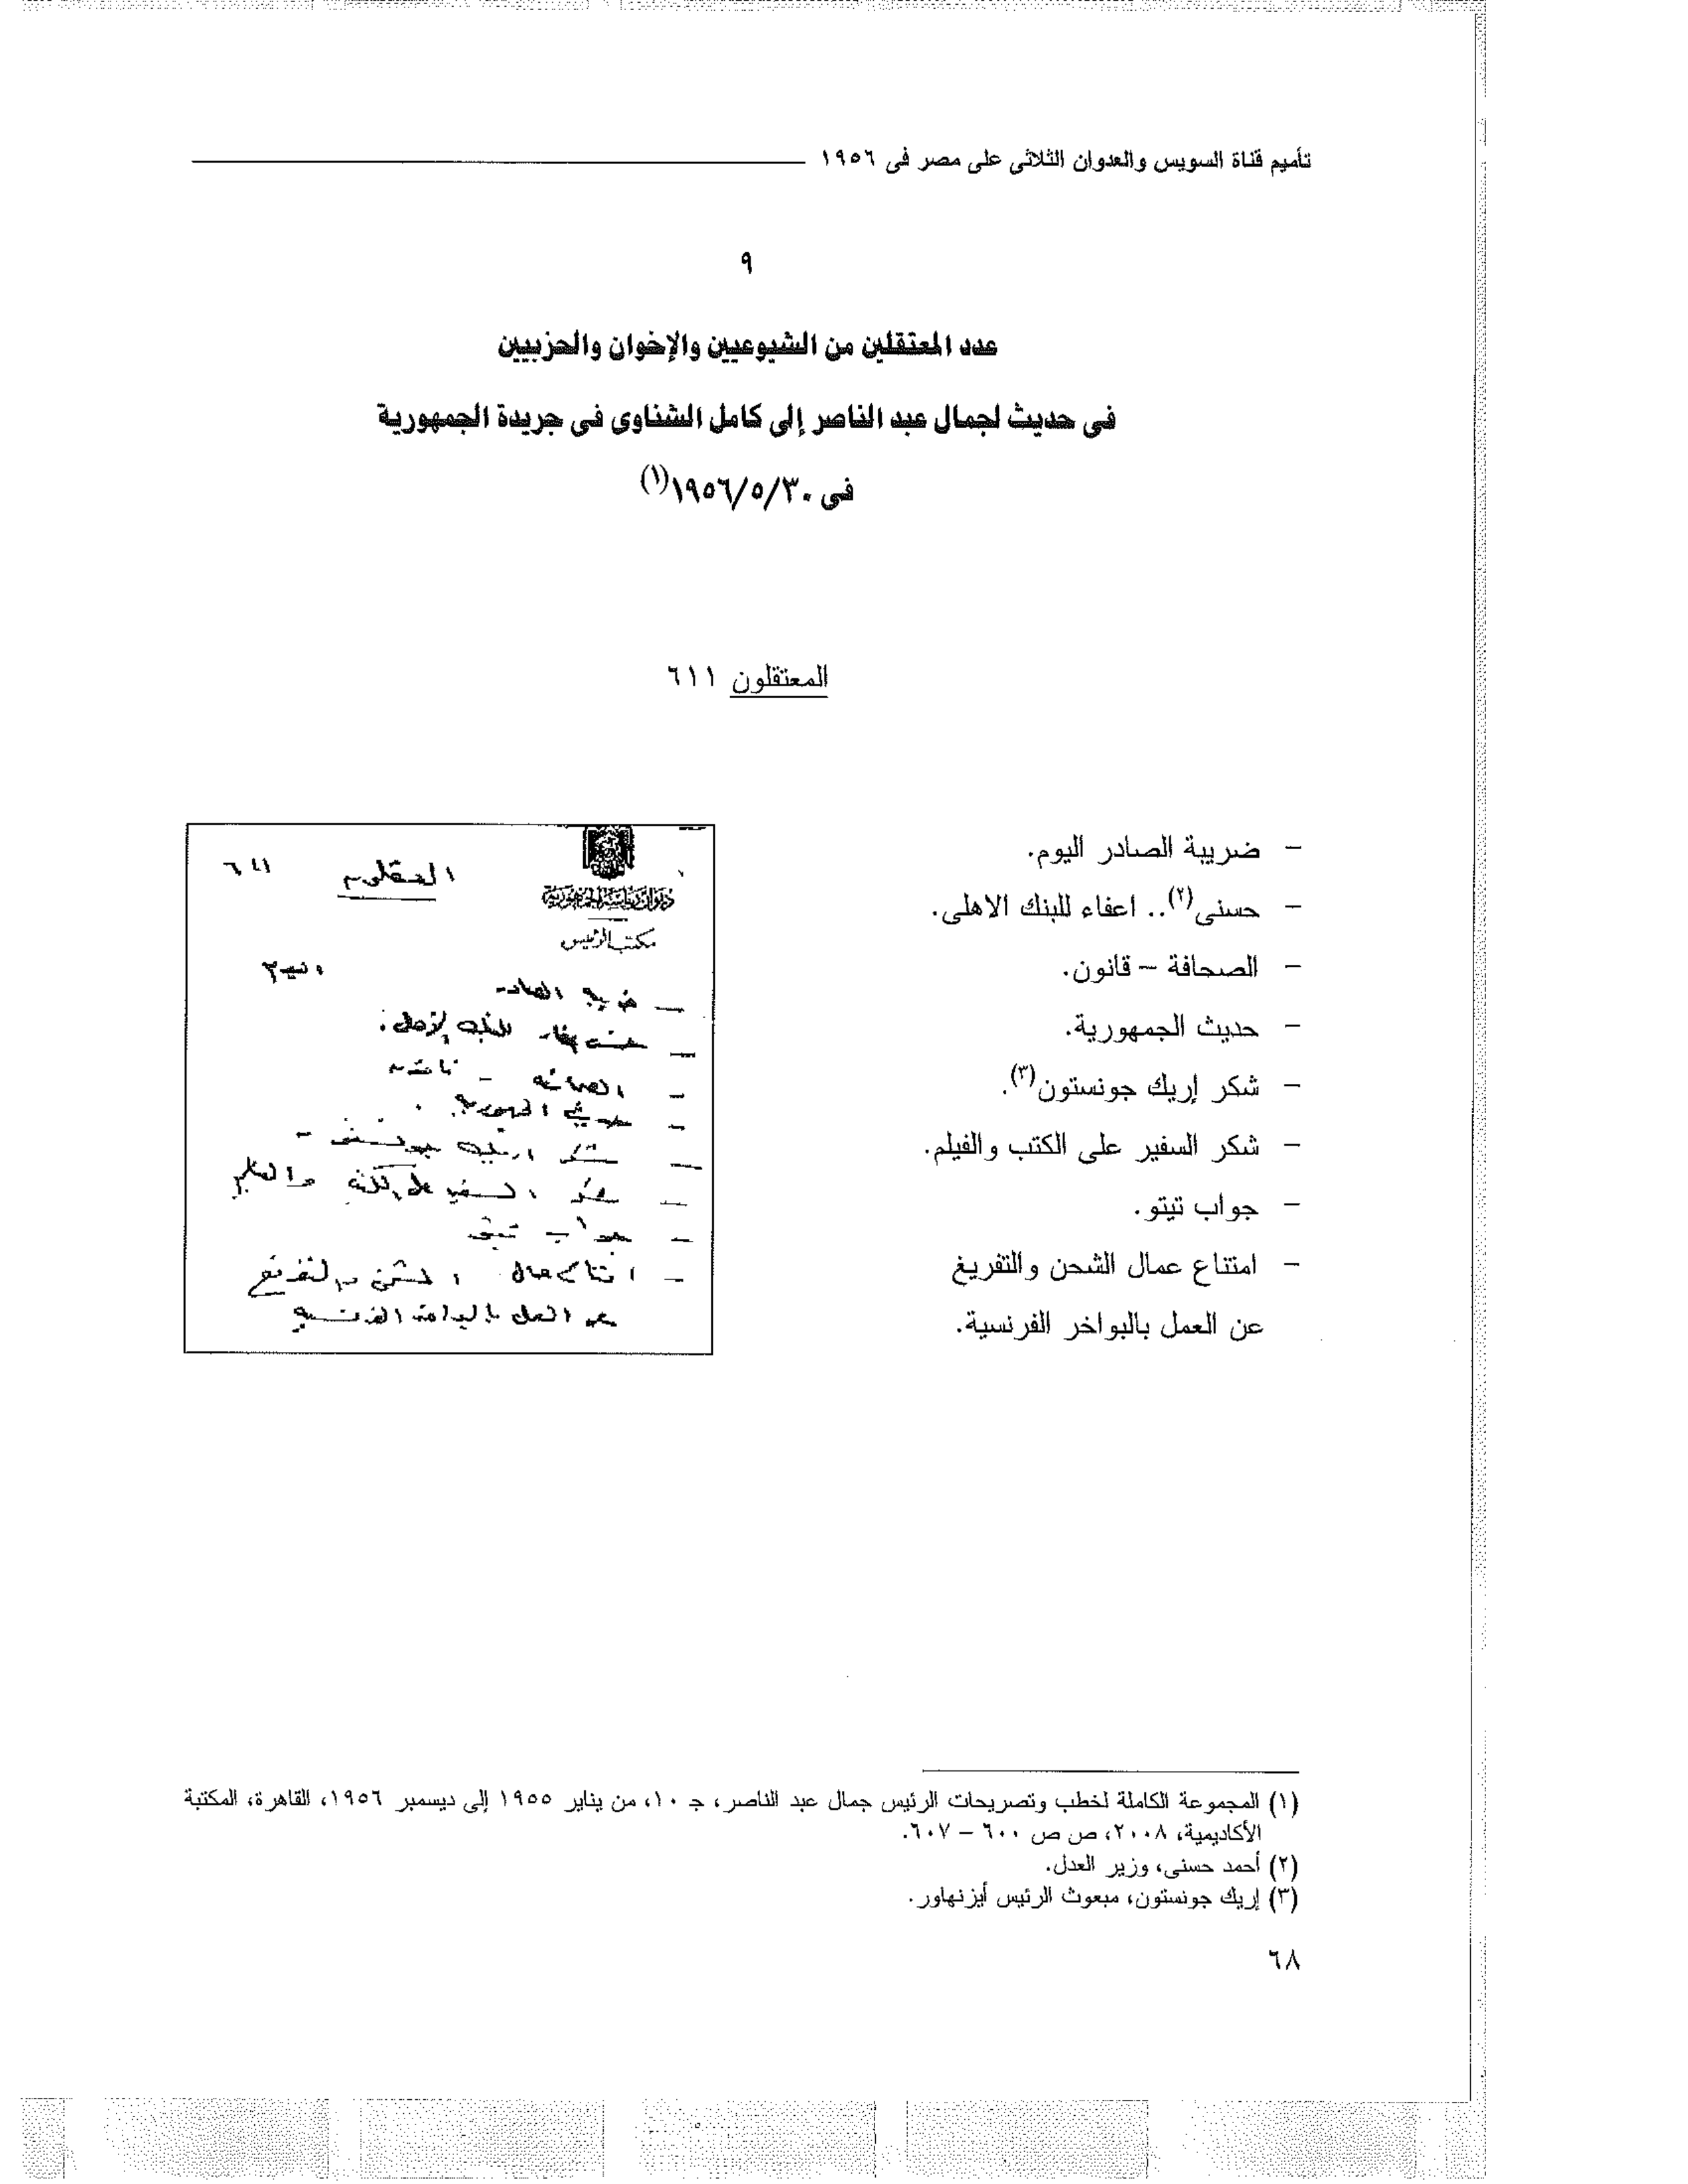 تأميم قناة السويس والعدوان الثلاثى على مصر فى ١٩٥٦
٩
عدد المعتقلين من الشيوعيين والإخوان والحزبيين
فى حديث لجمال عبد الناصر إلى كامل الشناوى فى جريدة الجمهورية
فى ١٩٥٦/٥/٣٠(١)
المعتقلون ٦١١
– ضريبة الصادر اليوم.
– حسنى(٢).. اعفاء للبنك الاهلى.
– الصحافة – قانون.
– حديث الجمهورية.
– شكر إريك جونستون(٣).
– شكر السفير على الكتب والفيلم.
– جواب تيتو.
– امتناع عمال الشحن والتفريغ
عن العمل بالبواخر الفرنسية.
المعتقلون ٦١١
ديوان رئاسة الجمهورية
مكتب الرئيس
– ضريبة الصادر اليوم
– حسنى اعفاء للبنك الاهلى.
– الصحافة – قانون
– حديث الجمهورية.
– شكر اريك جونستون –
– شكر السفير على الكتب والفيلم
– جواب تيتو
– امتناع عمال الشحن والتفريغ
عن العمل بالبواخر الفرنسية
(١) المجموعة الكاملة لخطب وتصريحات الرئيس جمال عبد الناصر، جـ ١٠، من يناير ١٩٥٥ إلى ديسمبر ١٩٥٦، القاهرة، المكتبة
الأكاديمية، ٢٠٠٨، ص ص ٦٠٠ – ٦٠٧.
(٢) أحمد حسنى، وزير العدل.
(٣) إريك جونستون، مبعوث الرئيس أيزنهاور.
٦٨